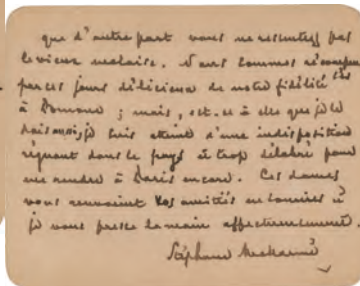 que d'autre part vous ne ressentez pas
le vieux malaise. Nous sommes récompen
par ces jours délicieux de notre fidélité sés
à ; mais, est-ce à elle que je le
dois aussi, je suis atteint d'une indisposition
régnant dans le pays et trop délabré pour
me rendre à Paris encore. Ces dames
vous renvoient vos amitiés et
je vous presse la main affectueusement.
Stéphane Mallarmé